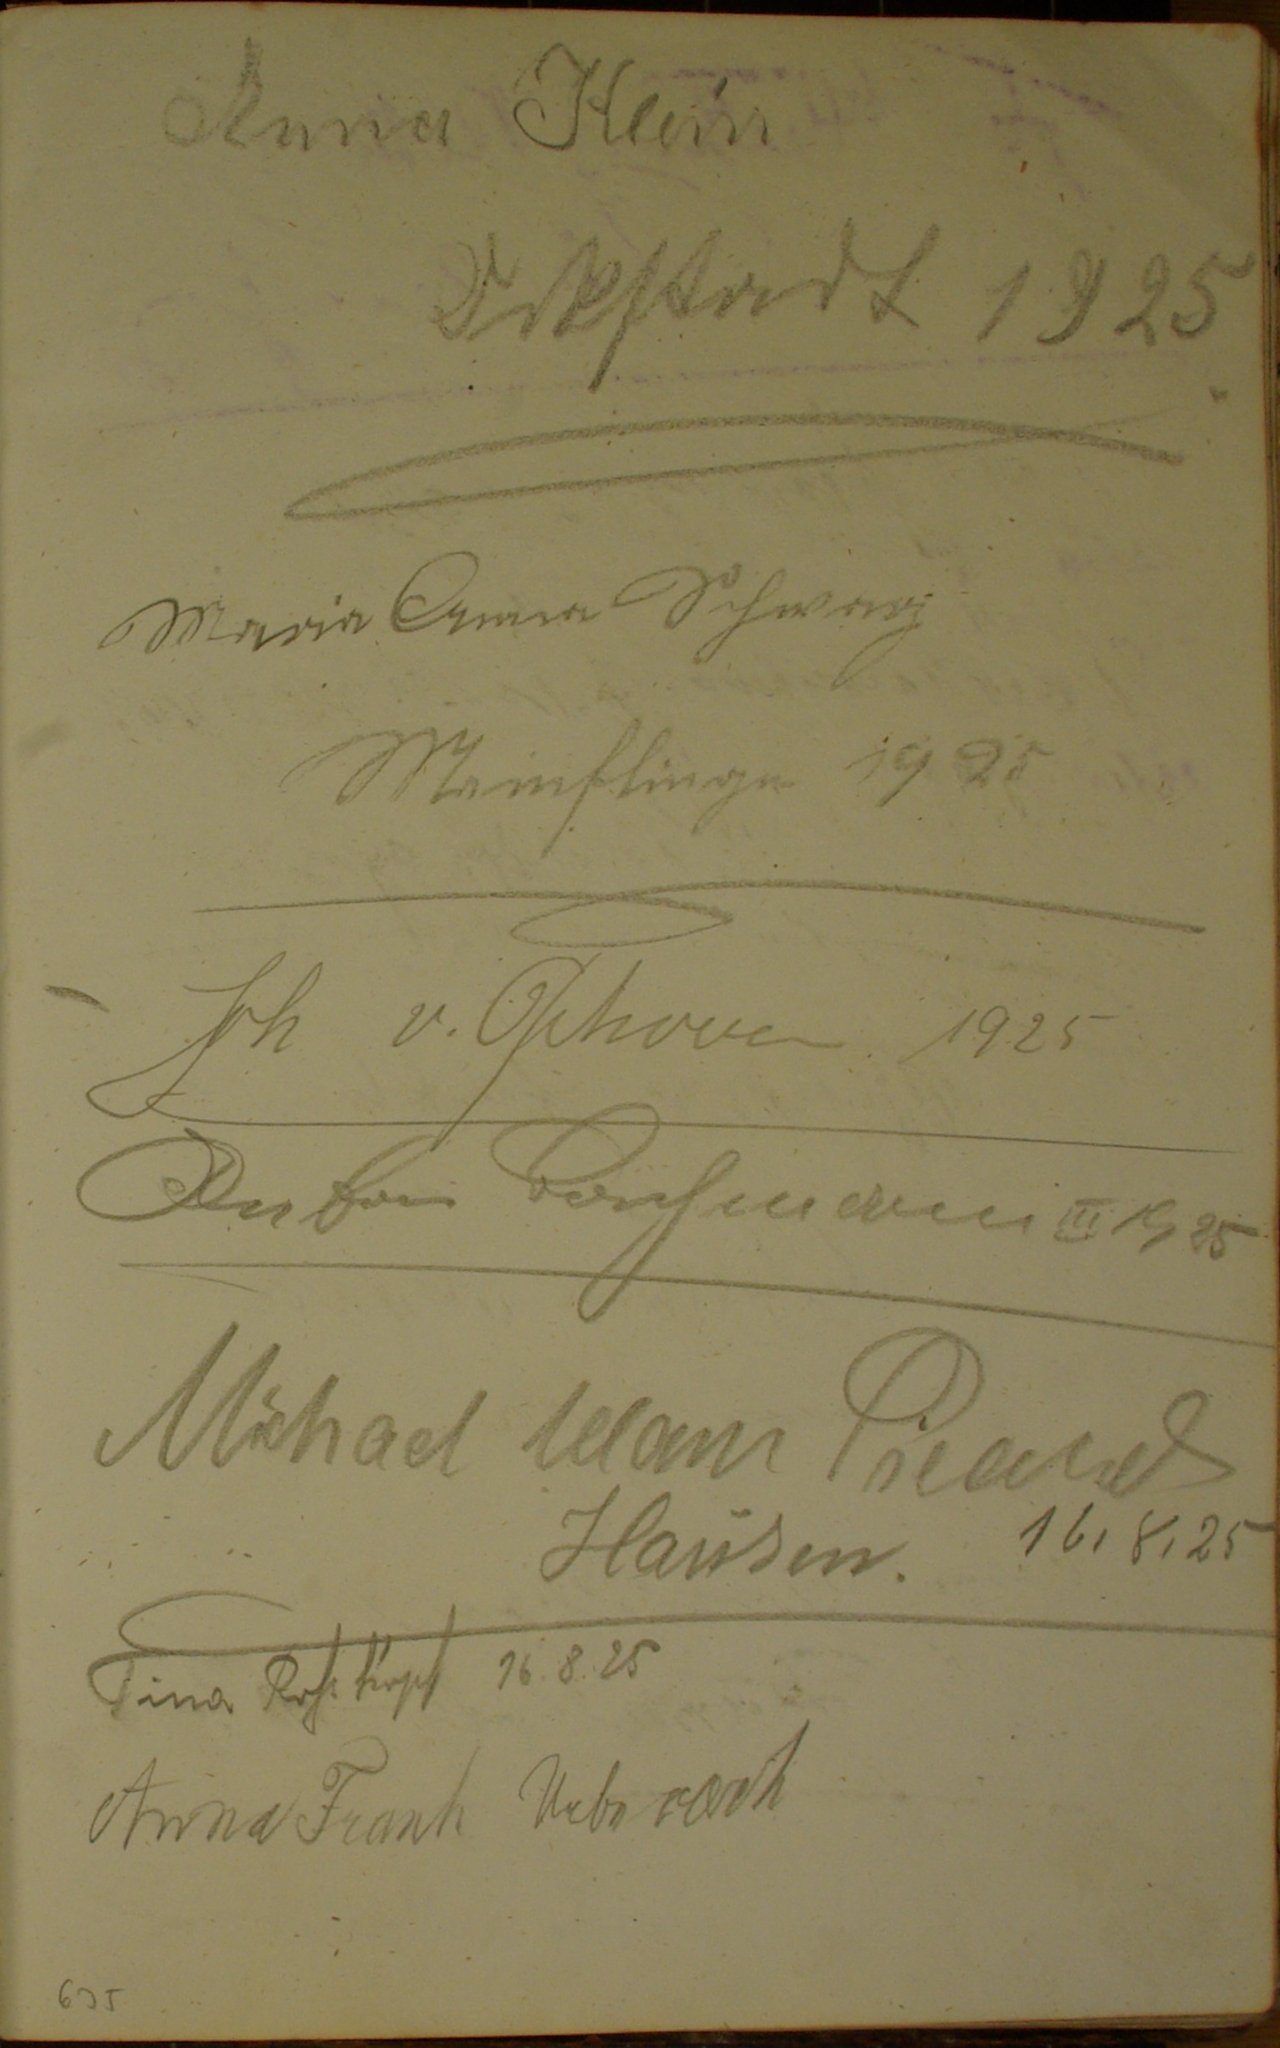 Anna Klein
Ockstadt 1925
Maria Anna Schwarz
Mainflingen 1925
Joh v. Ophoven 1925
Anton III 1925
Michael Adam Picard
Hausen. 16.8.25
Tina 16.8.25
Anna Frank Urberach
635